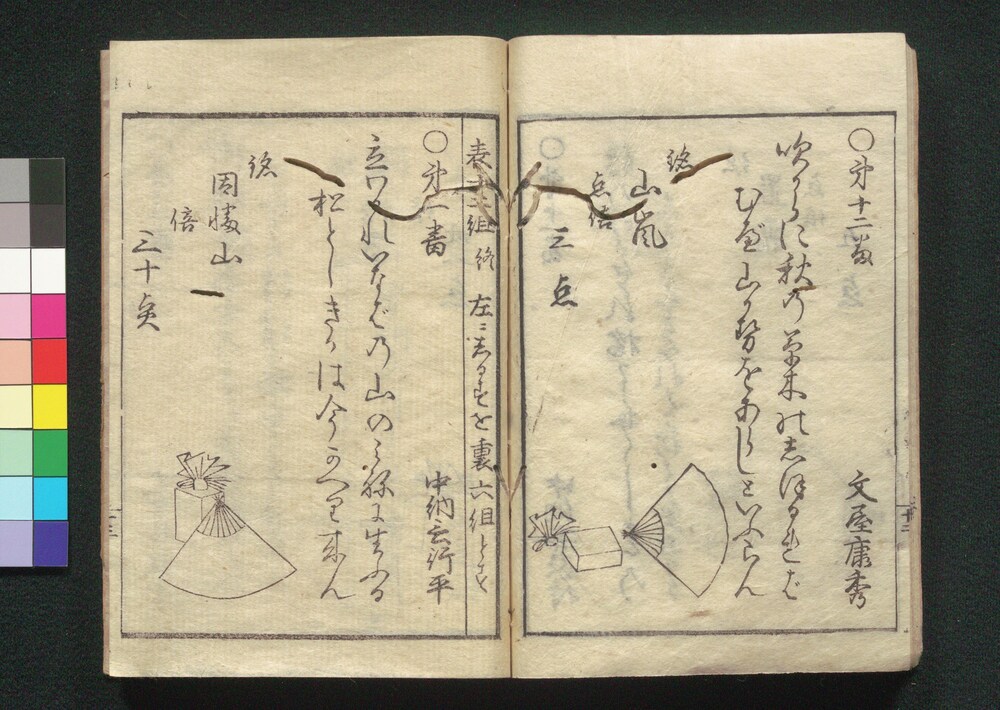 ○第十二番
文屋康秀
吹からに秋の草木のしほるれば
むべ山かぜをあらしといふらん
銘
山嵐
点結
三点
表十二組終　左ニしるすを裏六組とす
○第一番
中納言行平
立わかれいなばの山のみねに生ふる
松としきかは今かへり来ん
銘
因幡山
倍
三十点